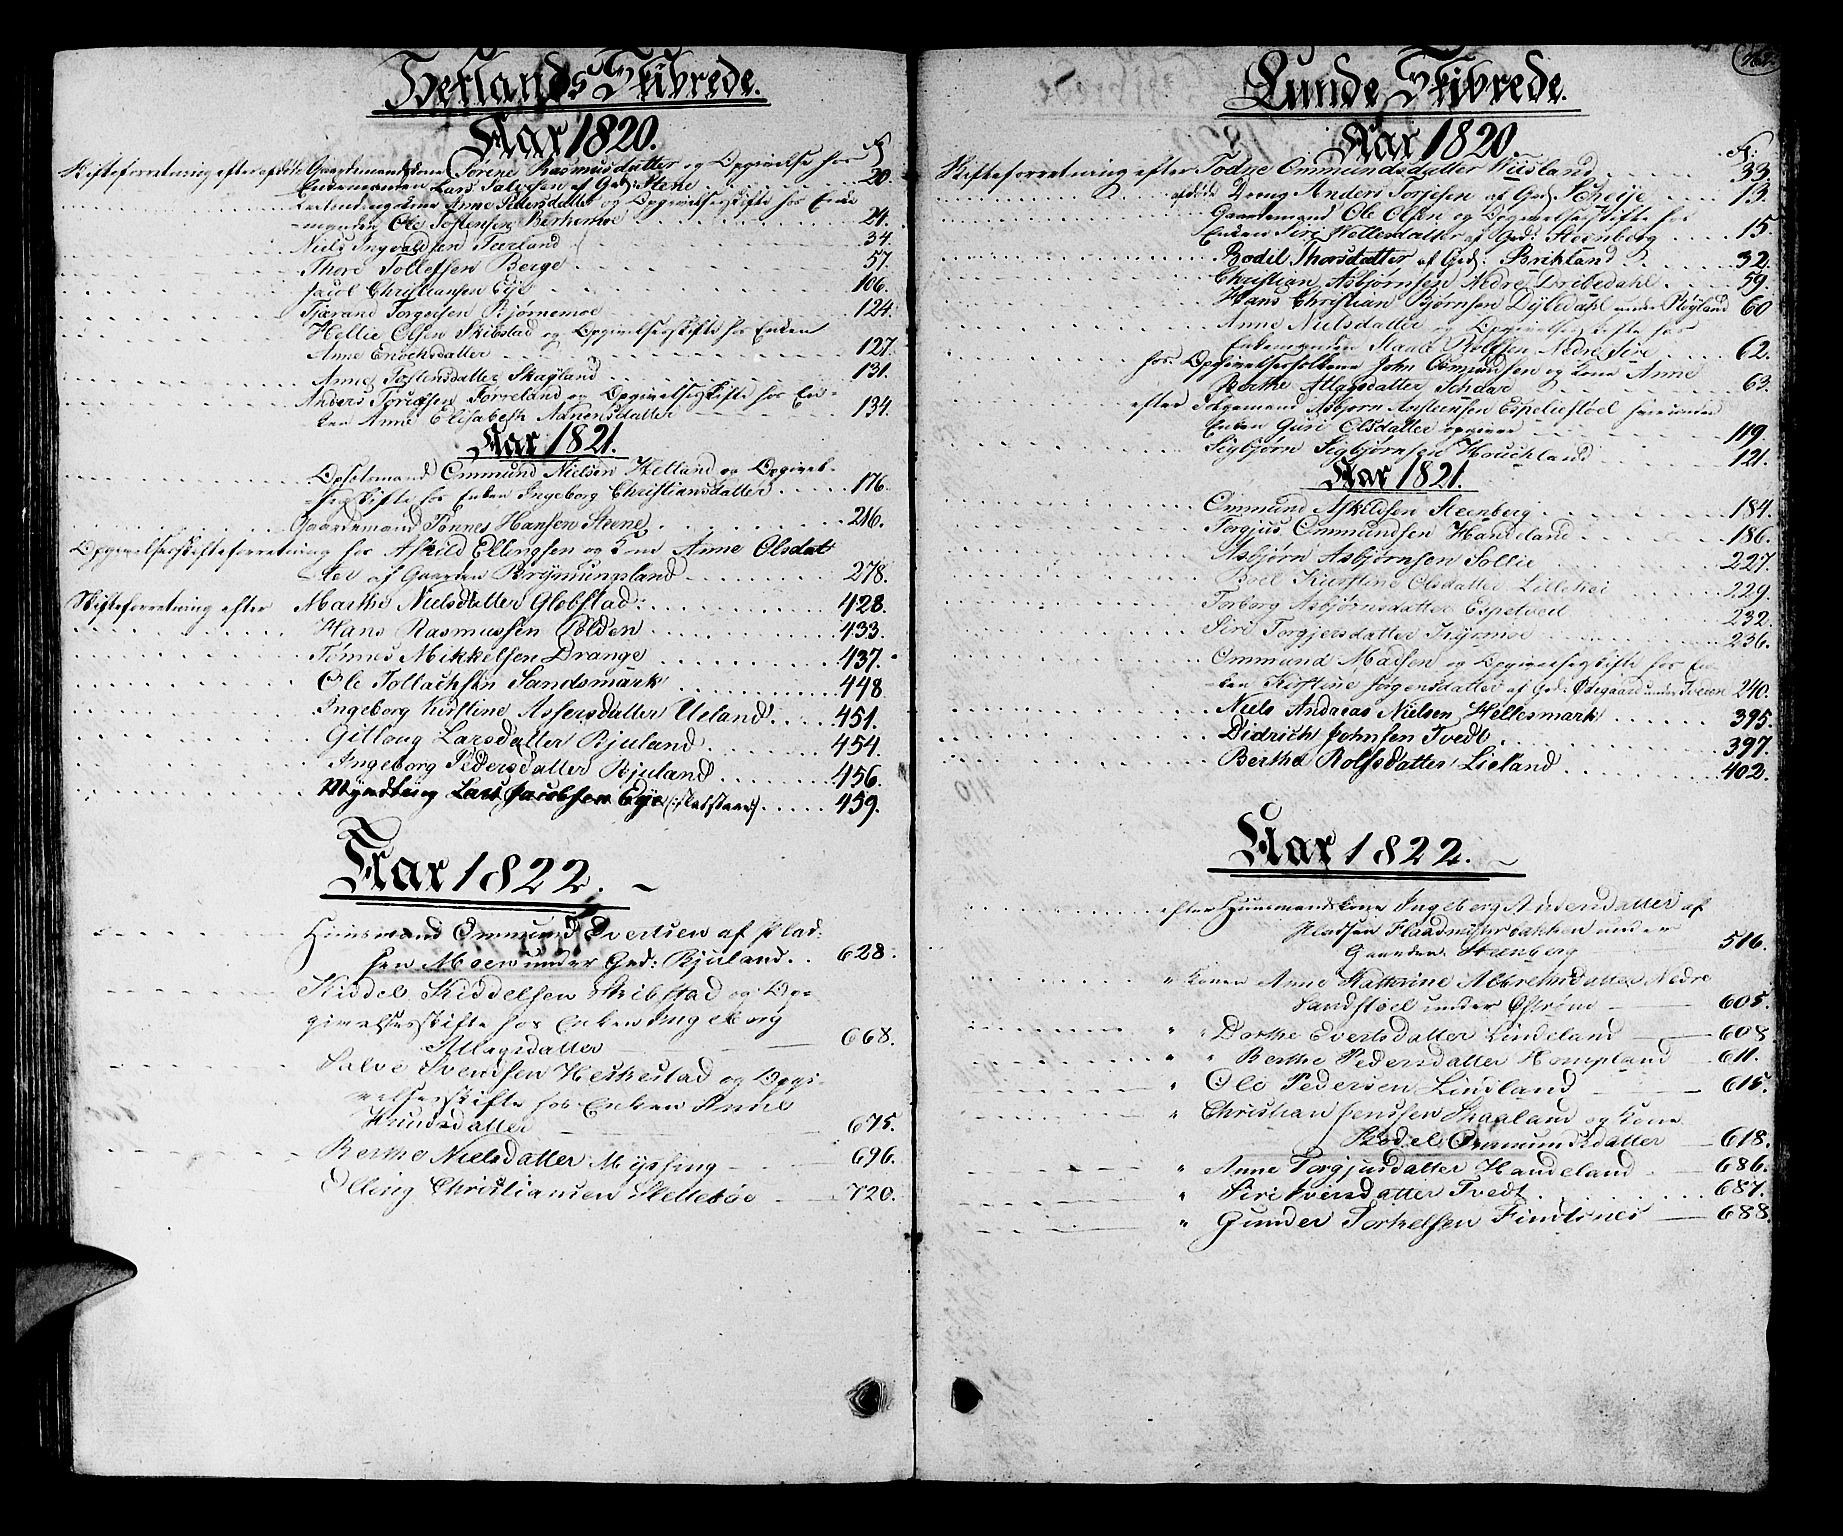 Hetlands Skibrede.
Aar 1820.
Skifteforretning efter afdøde Gaardemandskone Sørene Rasmusdatter og Opgivelse hos
Enkemanden Lars Salvesen af Grd: Stene 20.
Anne Pedersdatter og Opgivelsesskifte hos Enke
-manden Ole Tostensen Berhemoe 24.
Niels Ingvaldsen Tarland 34.
Thore Tollefsen Berge 57.
Paul Christiansen Eye 106.
Tjerand Torgersen Bjørnemoe 124.
Hellie Olsen Skibstad og Opgivelsesskifte hos Enken
Anne Enochsdatter 127.
Anne Tostensdatter Skagland 131.
Anders Torgersen Torreland og Opgivelsesskifte hos En-
ken Anne Elisabeth Aanensdatter 134.
Aar 1821.
Opsidsmand Ommund Nielsen Helland og Opgivel-
sesskifte hos Enken Ingeborg Christiansdatter 176.
Gaardemand Tønnes Hansen Steene 216.
Opgivelsesskifteforretning hos Askild Ellingsen og Kone Anne Olsdat
-ter af Gaarden Brynnungsland 278.
Skifteforretning efter Marthe Nielsdatter Globstad 428.
Hans Rasmussen Polden 433.
Tønnes Mikkelsen Drange 437.
Ole Tollachsen Sandsmark 448
Ingeborg Kirstine Assersdatter Ueland 451.
Gitlaug Larsdatter Bjuland 454.
Ingeborg Pedersdatter Bjuland 456.
Myndling Lars Jacobsen Eye 459.
Aar 1822.
Huusmand Ommund Evertsen af Plad-
sen Moen under Grd: Bjuland 628.
Kiddel Kiddelsen Skibstad og Op-
givelsesskifte hos Enken Ingeborg
Atlagsdatter 668.
Salve Svendsen Heskestad og Opgi-
velsesskifte hos Enken Anne
Knudsdatter 675.
Berthe Nielsdatter Myssing 696.
Elling Christiansen Slettebøe 720.
Lunde Skibrede.
Aar 1820.
Skifteforretning efter Todne Ommundsdatter Wiisland 33.
afdøde Dreng Anders Torjesen af Grd: Eheije 13.
Gaardemand Ole Olsen og Opgivelsesskifte hos
Enken Siri Wollesdatter af Grd: Steenberg 15.
Bodil Thorsdatter af Grd: Birkland 32.
Christian Asbjørnsen Nedre Dribedahl 59.
Hans Christian Bjørnsen Dybdahl under Røgland 60
Anne Nielsdatter og Opgivelsesskifte hos
Enkemanden Rolfsen Nedre Sire 62.
hos Opgivelsesfolkene John Osmundsen og Kone Anne
Berthe Atlagsdatter Schaar 63.
efter Asbjørn Ansteensen Espeliestøel hvis
Enken Guri Olsdatter opgiver 119.
Sigbjørn Sigbjørnsen Houchland 121.
Aar 1821.
Ommund Askildsen Steenberg 184.
Torgjus Ommundsen Handeland 186.
Asbjørn Asbjørnsen Sollie 227.
Boel Kirstine Olsdatter Lillehei 229.
Torborg Asbjørnsdatter Espetveit 232.
Siri Torgjersdatter Kyrmoe 236.
Ommund Madsen og Opgivelsesskifte hos En-
-ken Kirstine Jørgensdatter af Grd: Ødegaard under Tveden 240.
Niels Andreas Nielsen Hellesmark 395.
Didrich Johnsen Tvedt 397.
Berthe Rolfsdatter Lieland 402.
Aar 1822.
efter Huusmandskone Ingeborg Andersdatter af
Pladsen Flaadmyhrbakken under
Gaarden Steenberg 516.
" Konen Anne Kathrine Albretsdatter Nedre
Sandstøel under Østrem 605.
" " Dorthe Evertsdatter Lindeland 608
" " Berthe Pedersdatter Hompland 611.
" Ole Pedersen Lindland 615.
" Christian Jenssen Skagland og Kone
Bodel Ommundsdatter 618.
" Anne Torgjusdatter Handeland 686.
" Siri Iversdatter Tvedt 687.
" Gunder Torkelsen Findtsnes 688.